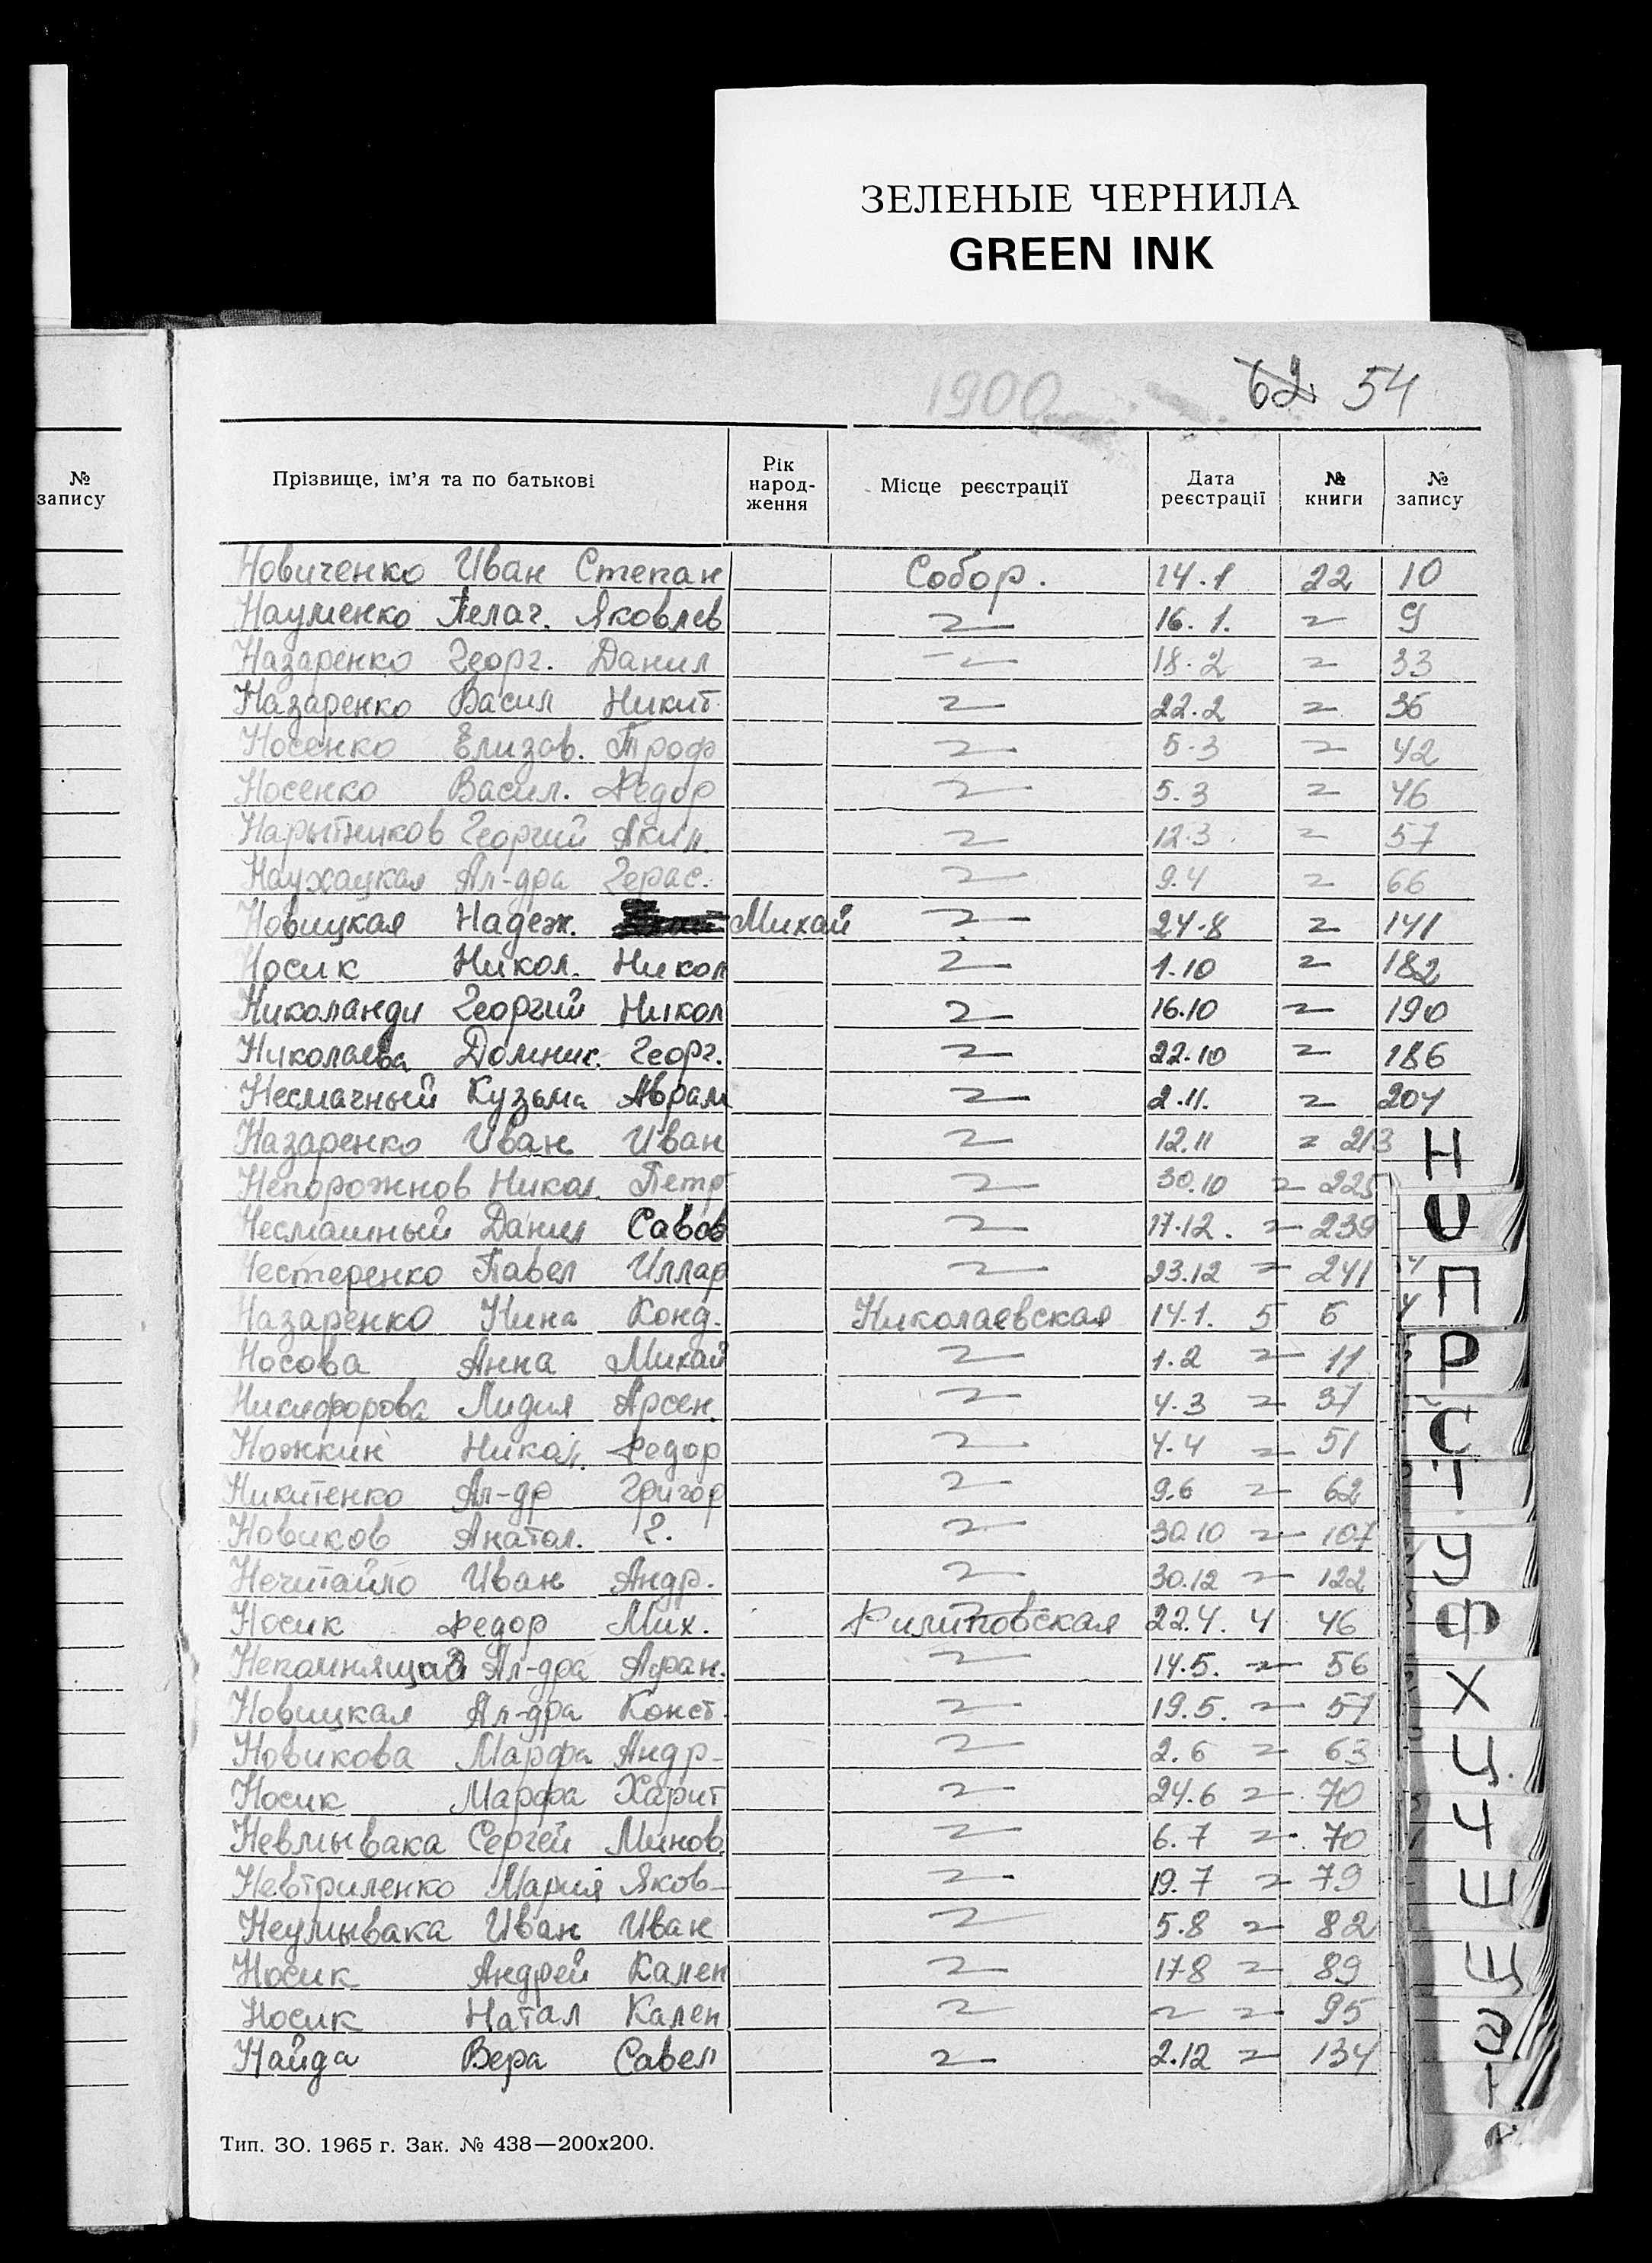 ЗЕЛЕНЫЕ ЧЕРНИЛА
GREEN INK
1900 62 54
№ запису
Прізвище, ім’я та по батькові Рік народ-ження Місце реєстрації Дата реєстрації № книги № запису
Новиченко Иван Степан Собор. 14.1 22 10
Науменко Пелаг. Яковлев 〃 16.1. 〃 9
Назаренко Георг. Данил 〃 18.2 〃 33
Назаренко Васил Никит. 〃 22.2 〃 36
Носенко Елизов. Троф 〃 5.3 〃 42
Носенко Васил. Федор 〃 5.3 〃 46
Нарытников Георгий Аким. 〃 12.3 〃 57
Наухацкая Ал-дра Герас. 〃 9.4 〃 66
Новицкая Надеж. Михай 〃 24.8 〃 141
Носик Никол. Никол 〃 1.10 〃 182
Николанди Георгий Никол 〃 16.10 〃 190
Николаева Домник. Георг. 〃 22.10 〃 186
Несмачный Кузьма Аврам 〃 2.11. 〃 204
Назаренко Иван Иван 〃 12.11 〃 213
Непорожнов Никол. Петр 〃 30.10 〃 225
Несмашный Данил Савов 〃 17.12. 〃 239
Нестеренко Павел Иллар 〃 23.12 〃 241
Назаренко Нина Конд. Николаевская 14.1. 5 6
Носова Анна Михай 〃 1.2 〃 11
Никифорова Лидия Арсен. 〃 4.3 〃 37
Ножкин Никол. Федор 〃 4.4 〃 51
Никитенко Ал-др Григор 〃 9.6 〃 62
Новиков Анатол. ?. 〃 30.10 〃 107
Нечитайло Иван Андр. 〃 30.12 〃 122
Носик Федор Мих. Филиповская 22.4. 4 46
Непомнящая Ал-дра Афан. 〃 14.5. 〃 56
Новицкая Ал-дра Конст. 〃 19.5. 〃 57
Новикова Марфа Андр- 〃 2.6 〃 63
Носик Марфа Харит 〃 24.6 〃 70
Невмывака Сергей Минов. 〃 6.7 〃 70
Невтриленко Мария Яков- 〃 19.7 〃 79
Неумывака Иван Иван 〃 5.8 〃 82
Носик Андрей Кален 〃 17.8 〃 89
Носик Натал Кален 〃 〃 〃 95
Найда Вера Савел 〃 2.12 〃 134
Тип. ЗО. 1965 г. Зак. № 438—200х200.
Н
О
П
Р
С
Т
У
Ф
Х
Ц.
Ч
Ш
Щ
Э